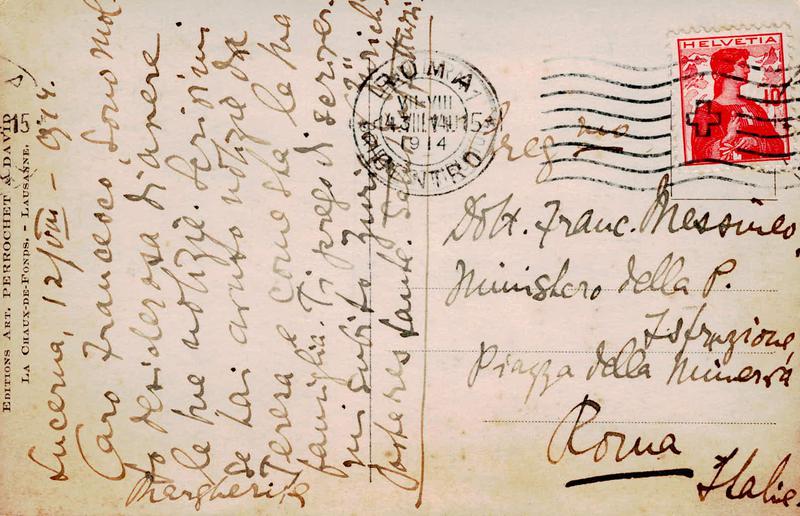 EDITIONS ART. PERROCHET & DAVID
LA CHAUX-DE-FONDS. - LAUSANNE.
15
Lucerna, 12/VIII - 914.
Caro Francesco, Sono mol-
to desiderosa di avere
le tue notizie. Scrivimi
se hai avuto notizie da
Teresa e come sta la tua
famiglia. Ti prego di scriver-
mi subito qui Zürich
poste restante.
Margherita
ROMA
15
1914
CENTRO
HELVETIA
10
Preg mo
Dott. Franc. Messineo,
Ministero della P.
Istruzione,
Piazza della Minerva
Roma
Italie.